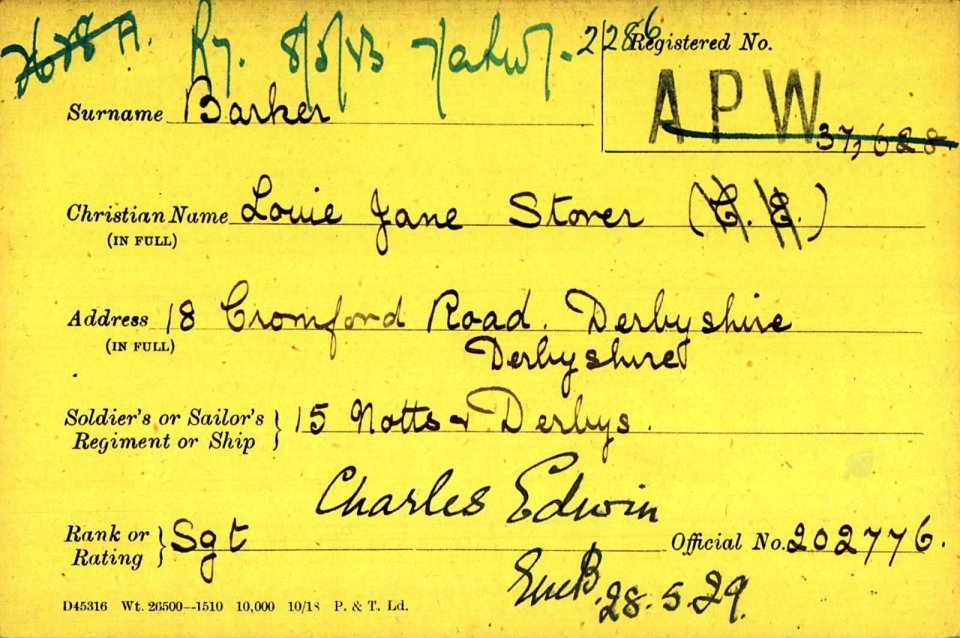 8/5/43 2/286
Registered No.
APW
37,628.
Surname Barker
Christian Name Louie Jane Stover (C. E.)
(IN FULL)
Address 18 Cromford Road. Derbyshire
(IN FULL) Derbyshire
Soldier's or Sailor's } 15 Notts & Derbys.
Regiment or Ship
Charles Edwin
Rank or } Sgt Official No. 202776.
Rating
EmB. 28.5.29.
D45316 Wt. 26500--1510 10,000 10/18 P. & T. Ld.